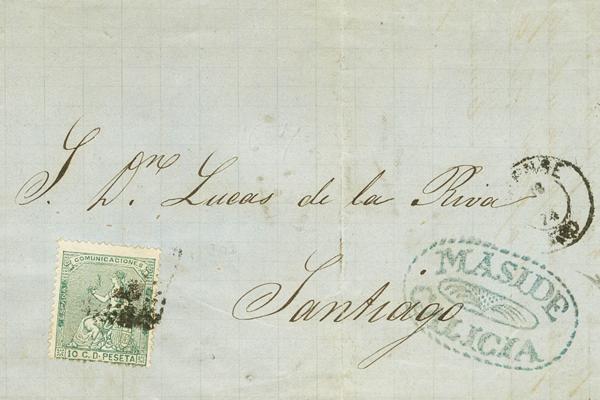 S. Dn Lucas de la Riva
Santiago
COMUNICACIONES
ESPAÑA
10 C. D. PESETA
MASIDE
GALICIA